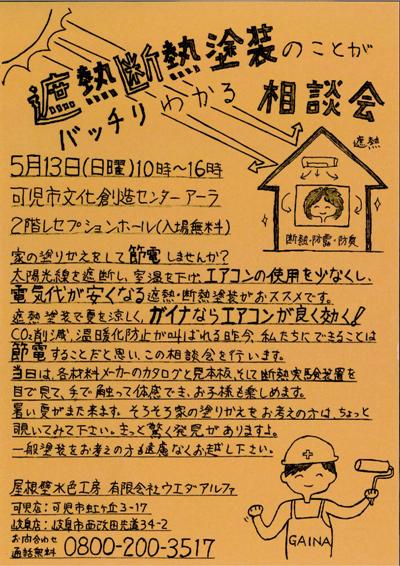 遮熱断熱塗装のことが
バッチリわかる 相談会
5月13日(日曜)10時〜16時
可児市文化創造センター アーラ
2階レセプションホール(入場無料)
遮熱
断熱・防露・防臭
家の塗りかえをして節電しませんか?
太陽光線を遮断し、室温を下げ、エアコンの使用を少なくし、
電気代が安くなる遮熱・断熱塗装がおススメです。
遮熱塗装で夏を涼しく、ガイナならエアコンが良く効く!!
CO₂削減、温暖化防止が叫ばれる昨今、私たちにできることは
節電することだと思い、この相談会を行います。
当日は、各材料メーカーのカタログと見本版、そして断熱実験装置を
目で見て、手で触って体感でき、お子様も楽しめます。
暑い夏がまた来ます。そろそろ家の塗りかえをお考えの方は、ちょっと
覗いてみて下さい。きっと驚く発見がありますよ。
一般塗装をお考えの方も遠慮なくお越し下さい。
屋根壁水色工房 有限会社ウエダアルファ
可児店:可児市虹ヶ丘3-17
岐阜店:岐阜市西改田先道34-2
お問合わせ
通話無料 0800-200-3517
GAINA